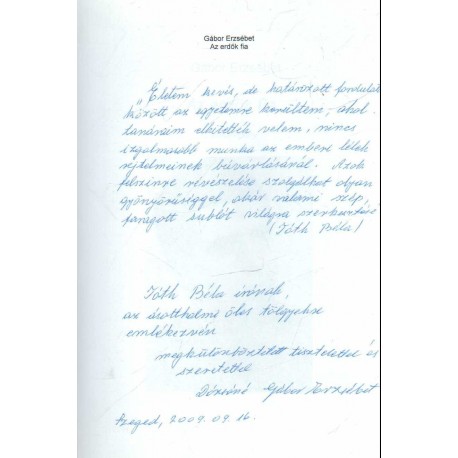 Gábor Erzsébet
Az erdők fia
„Életem kevés, de határozott fordulat
között az egyetemre kerültem, ahol
tanáraim elhitették velem, nincs
izgalmasabb munka az emberi lélek
rejtelmeinek búvárlásánál. Azok
felszínre révészelése szolgálhat olyan
gyönyörűséggel, akár valami szép,
faragott sublót világra
(Tóth Béla)
Tóth Béla írónak,
az ásotthalmi öles tölgyekre
emlékezvén
megkülönböztetett tisztelettel és
szeretettel
Gábor Erzsébet
Szeged, 2009.09.16.